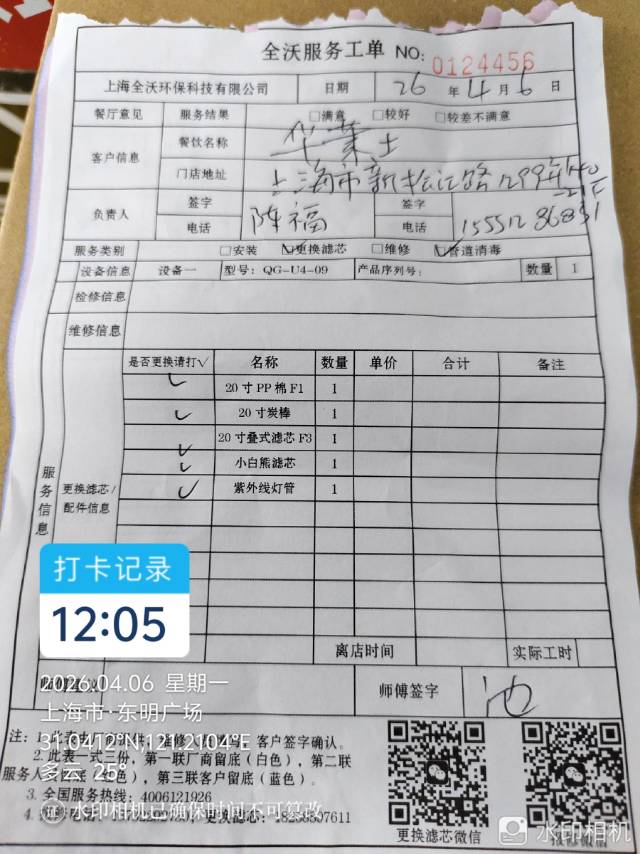 全沃服务工单 NO: 0124456
上海全沃环保科技有限公司 日期 26 年 4 月 6 日
餐厅意见 服务结果 □满意 □较好 □较差不满意
客户信息 餐饮名称 华莱士
门店地址 上海市新松江路1299弄
负责人 签字 陈福 签字
电话 电话 15551286831
服务类别 □安装 ☑更换滤芯 □维修 ☑管道消毒
设备信息 设备一 型号: QG-U4-09 产品序列号: 数量 1
检修信息
维修信息
服务信息
更换滤芯/配件信息
是否更换请打√ 名称 数量 单价 合计 备注
✓ 20寸PP棉F1 1
✓ 20寸炭棒 1
✓ 20寸叠式滤芯F3 1
✓ 小白熊滤芯 1
✓ 紫外线灯管 1
打卡记录
12:05
离店时间 实际工时
2026.04.06 星期一
师傅签字 池
上海市·东明广场
多云
注: 1. 客户签字确认。
2. 此表一式三份, 第一联厂商留底(白色), 第二联
服务人 色), 第三联客户留底(蓝色)。
3. 全国服务热线: 4006121926
水印相机已确保时间不可篡改
更换滤芯微信
水印相机